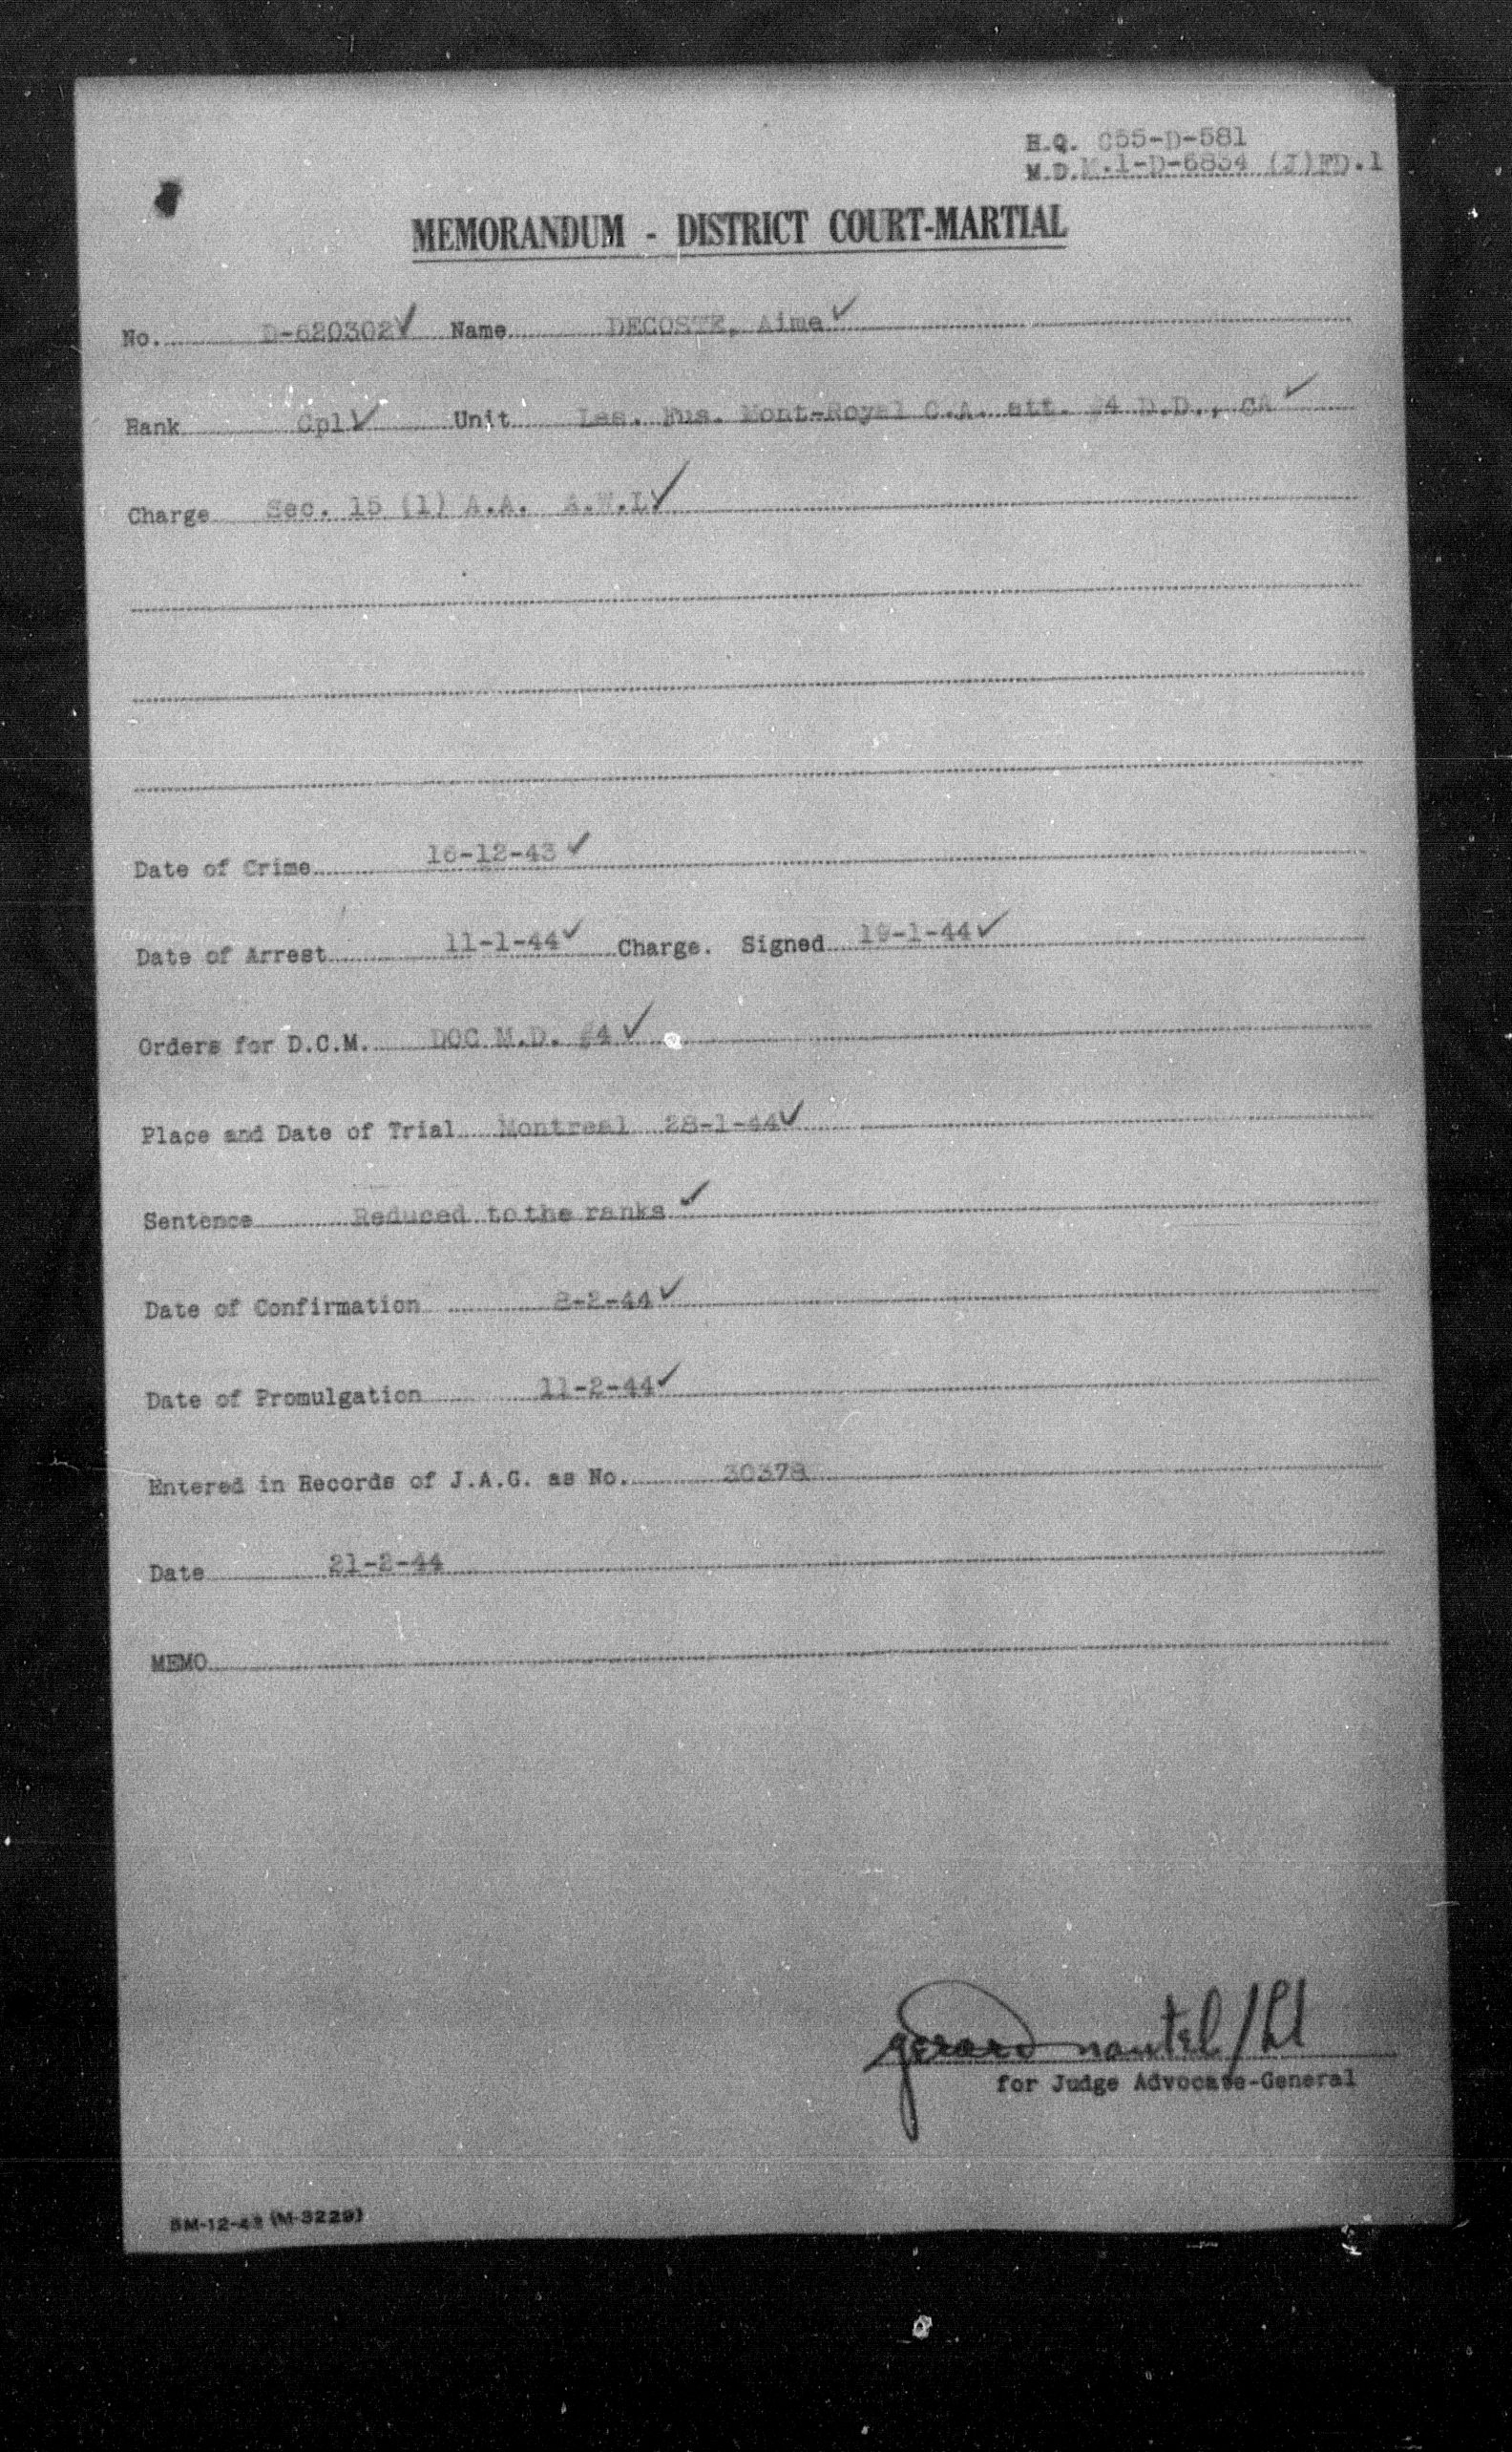 H.Q. C55-D-581
M.D. M.1-D-6834 (J)FD.1
MEMORANDUM - DISTRICT COURT-MARTIAL
No. D-620302 ✓ Name DECOSTE, Aime ✓
Rank Cpl ✓ Unit Les. Fus. Mont-Royal C.A. att. #4 D.D., CA ✓
Charge Sec. 15 (1) A.A. A.W.L ✓
Date of Crime 16-12-43 ✓
Date of Arrest 11-1-44 ✓ Charge. Signed 19-1-44 ✓
Orders for D.C.M. DOC M.D. #4 ✓
Place and Date of Trial Montreal 28-1-44 ✓
Sentence Reduced to the ranks ✓
Date of Confirmation 8-2-44 ✓
Date of Promulgation 11-2-44 ✓
Entered in Records of J.A.G. as No. 30378
Date 21-2-44
MEMO
Gerard Nantel /Lt
for Judge Advocate-General
5M-12-43 (M-3229)